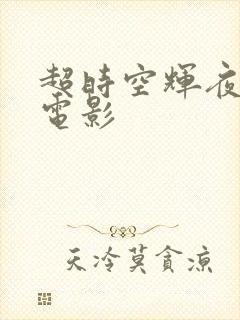 超時空輝夜
電影
天冷莫貪涼